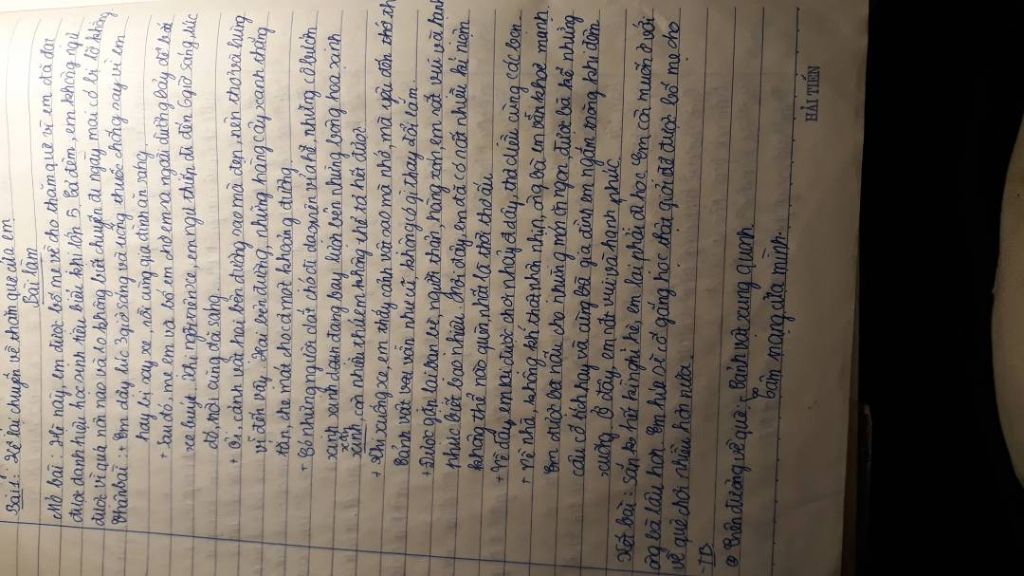 Bài 1: Kể lại chuyện về thăm quê của em
Bài làm
Mở bài: Hè này, em được bố mẹ về cho thăm quê vì em đã đạt
được danh hiệu học sinh tiêu biểu khi lớn 5. Cả đêm, em không ngủ
được vì quá náo nào và lo không biết chuyến đi ngày mai có bị lỡ không
Thân bài: + Em dậy lúc 3 giờ sáng và uống thuốc chống say vì em
hay bị say xe rồi cùng gia đình ăn sáng
+ Sau đó, mẹ em và bố em chở em ra ngoài đường bảy để bắt
xe buýt. Khi ngồi trên xe, em ngủ thiếp đi đến 6 giờ sáng lúc
đó, trời cũng đã sáng
+ Ôi, cảnh vật hai bên đường sao mà đẹp, nên thơ và hùng
vĩ đến vậy. Hai bên đường, những hàng cây xanh thẳng
tắp, che mát cho cả một khoảng đường
+ Có những người dắt chó đi dạo
xinh xinh
xinh, còn nhiều thứ em không thể tả hết được
+ Khi xuống xe, em thấy cảnh vật sao mà nhỏ, mà yên đến thế
Cảnh vật vẫn như cũ, không có gì thay đổi lắm.
+ Được gặp lại bạn bè, người thân, hàng xóm, em rất vui và hạnh
phúc biết bao nhiêu. Nơi đây, em đã có rất nhiều kỉ niệm
không thể nào quên, nhất là thời thơ ấu.
+ Về đây, em lại được chơi nhảy dây, thả diều cùng các bạn
+ Về nhà, không khí thật nhộn nhịp, ông bà em vẫn khoẻ mạnh
Em được bà nấu cho những món ăn ngon, được bà kể những
câu cổ tích hay và cùng cả gia đình em ngắm trăng khi đêm
xuống. Ở đây, em rất vui và hạnh phúc
Kết bài: Sắp hết hè nghỉ hè, em lại phải đi học. Em còn muốn ở với
ông bà lâu hơn. Em hứa sẽ cố gắng học thật giỏi để được bố mẹ cho
về quê chơi nhiều hơn nữa.
-TB
+ Trên đường về quê: Cảnh vật xung quanh
tâm trạng của mình
HẢI TIẾN